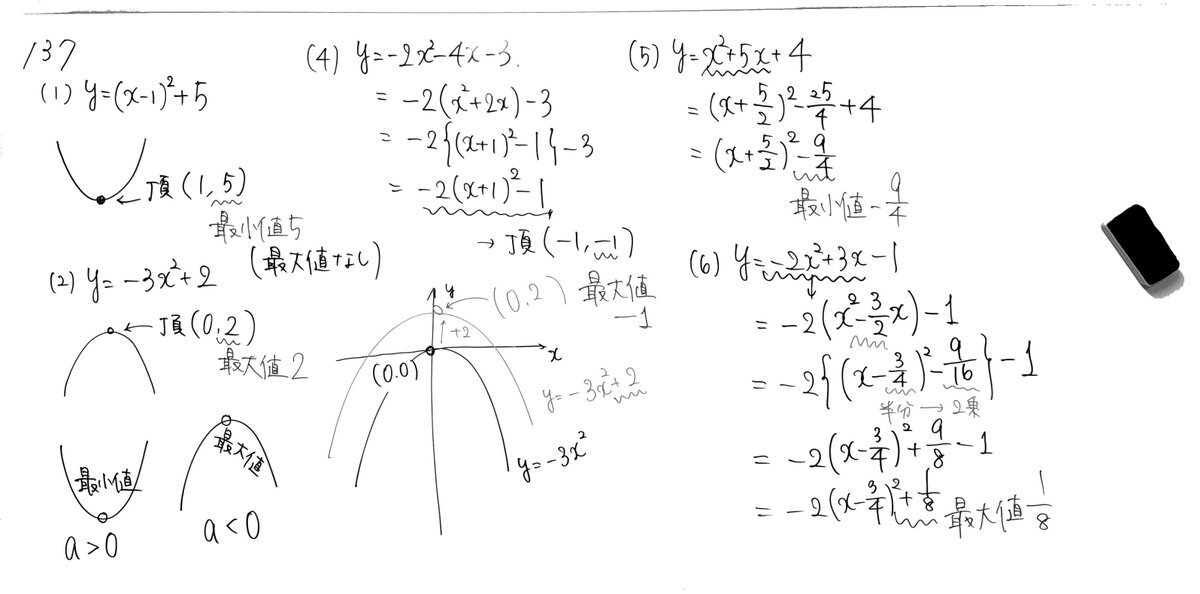 137
(1) y=(x-1)²+5
←頂(1,5)
最小値5
(最大値なし)
(2) y=-3x²+2
←頂(0,2)
最大値2
最小値
a>0
最大値
a<0
(4) y=-2x²-4x-3.
=-2(x²+2x)-3
=-2{(x+1)²-1}-3
=-2(x+1)²-1
→頂(-1,-1)
最大値
-1
y
(0,2)
+2
x
(0.0)
y=-3x²+2
y=-3x²
(5) y=x²+5x+4
=(x+5/2)²-25/4+4
=(x+5/2)²-9/4
最小値-9/4
(6) y=-2x²+3x-1
=-2(x²-3/2x)-1
=-2{(x-3/4)²-9/16}-1
半分→2乗
=-2(x-3/4)²+9/8-1
=-2(x-3/4)²+1/8
最大値1/8